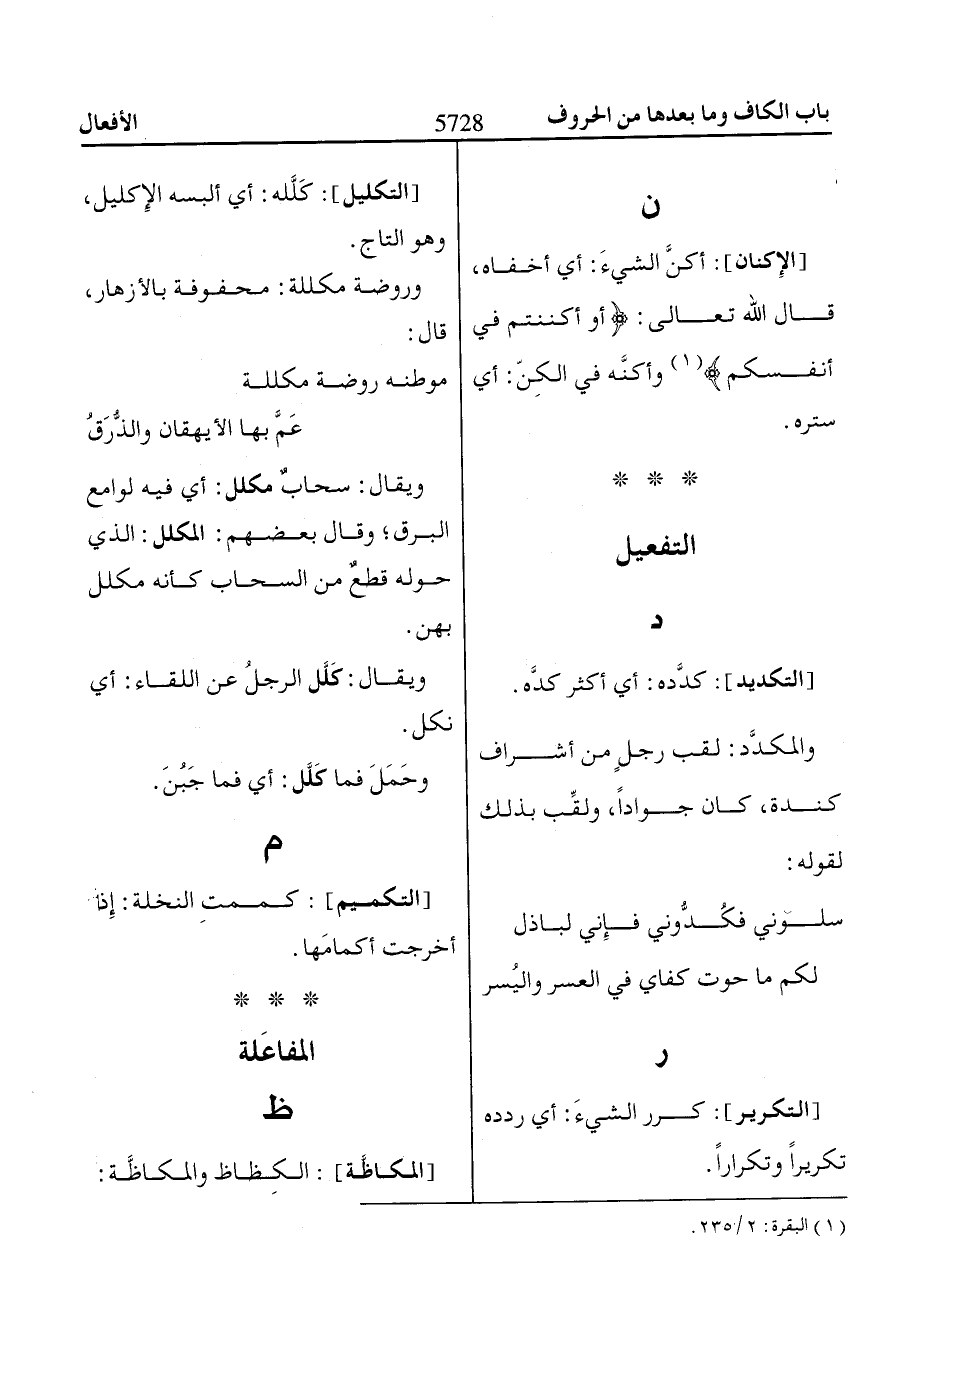 باب الكاف وما بعدها من الحروف 5728 الأفعال
ن
[الإكنان]: أكنَّ الشيءَ: أي أخفاه،
قال الله تعالى: ﴿أو أكننتم في
أنفسكم﴾(١) وأكنَّه في الكنّ: أي
ستره.
* * *
التفعيل
د
[التكديد]: كدَّده: أي أكثر كدَّه.
والمكدَّد: لقب رجلٍ من أشراف
كندة، كان جواداً، ولقِّب بذلك
لقوله:
سلوني فكُدُّوني فإني لباذل
لكم ما حوت كفاي في العسر واليُسر
ر
[التكرير]: كرر الشيءَ: أي ردده
تكريراً وتكراراً.
[التكليل]: كَلَّله: أي ألبسه الإكليل،
وهو التاج.
وروضة مكللة: محفوفة بالأزهار،
قال:
موطنه روضة مكللة
عَمَّ بها الأيهقان والذُّرَقُ
ويقال: سحابٌ مكلل: أي فيه لوامع
البرق؛ وقال بعضهم: المكلل: الذي
حوله قطعٌ من السحاب كأنه مكلل
بهن.
ويقال: كَلَّل الرجلُ عن اللقاء: أي
نكل.
وحَمَلَ فما كَلَّل: أي فما جَبُنَ.
م
[التكميم]: كممتِ النخلة: إذا
أخرجت أكمامَها.
* * *
المفاعَلة
ظ
[المكاظَّة]: الكِظاظ والمكاظَّة:
(١) البقرة: ٢/ ٢٣٥.